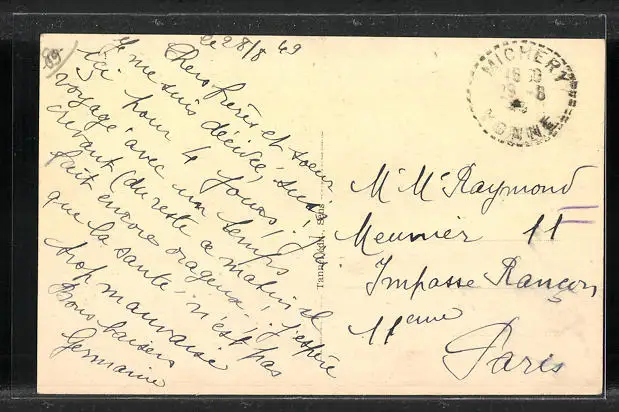 le 28/8 49
Chers frères et soeur
Je me suis décidée, suis
ici pour 4 jours! J'ai
voyagé avec un temps
crevant (du reste ce matin il
fait encore orageux - J'espère
que la santé n'est pas
trop mauvaise
Bons baisers
Germaine
69
Sens
MICHERY
29 - 8
YONNE
Mr Me Raymond
Meunier 11
Impasse Rançon
11eme
Paris